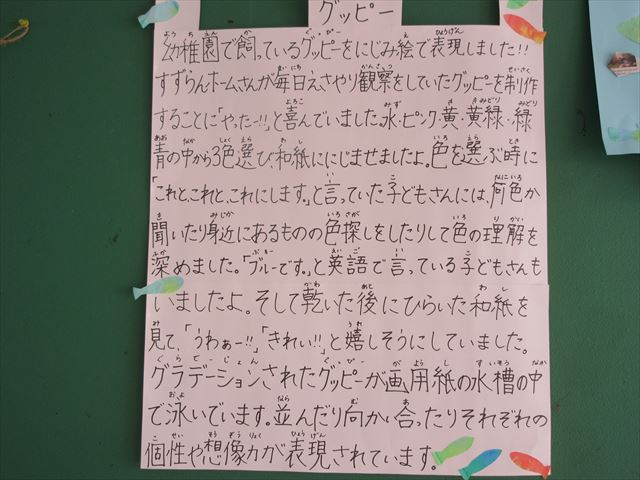 グッピー
幼稚園で飼っているグッピーをにじみ絵で表現しました!!
すずらんホームさんが毎日えさやり観察をしていたグッピーを制作
することに「やったー!!」と喜んでいました。水・ピンク・黄・黄緑・緑
青の中から3色選び、和紙ににじませましたよ。色を選ぶ時に
「これと、これと、これにします。」と言っていた子どもさんには、何色か
聞いたり身近にあるものの色探しをしたりして色の理解を
深めました。「ブルーです。」と英語で言っている子どもさんも
いましたよ。そして乾いた後にひらいた和紙を
見て、「うわぁー!!」「きれい!!」と嬉しそうにしていました。
グラデーションされたグッピーが画用紙の水槽の中
で泳いでいます。並んだり向かい合ったりそれぞれの
個性や想像力が表現されています。